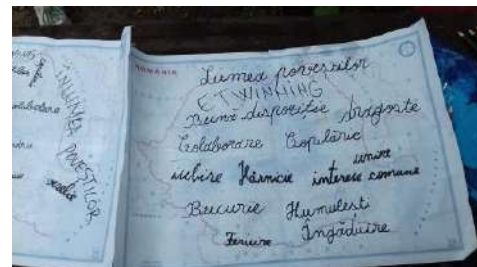 ÎN LUMEA
POVEȘTILOR
ROMANIA
Lumea poveștilor
ETWINNING
Bună dispoziție dragoste
Colaborare Copilărie
unire
iubire Hărnicie interese comune
Bucurie Humulești
Fericire Îngăduire